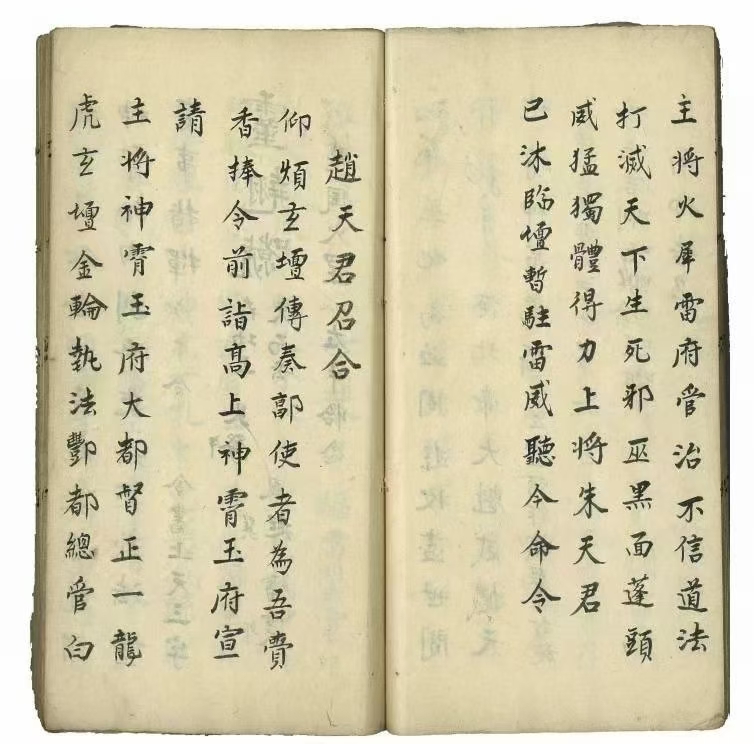 主將火犀雷府管治不信道法
打滅天下生死邪巫黑面蓬頭
威猛獨體得力上將朱天君
已沐臨壇暫駐雷威聽令命令
趙天君召合
仰煩玄壇傳奏部使者為吾賫
香捧令前詣髙上神霄玉府宣
請
主將神霄玉府大都督正一龍
虎玄壇金輪執法酆都總管白